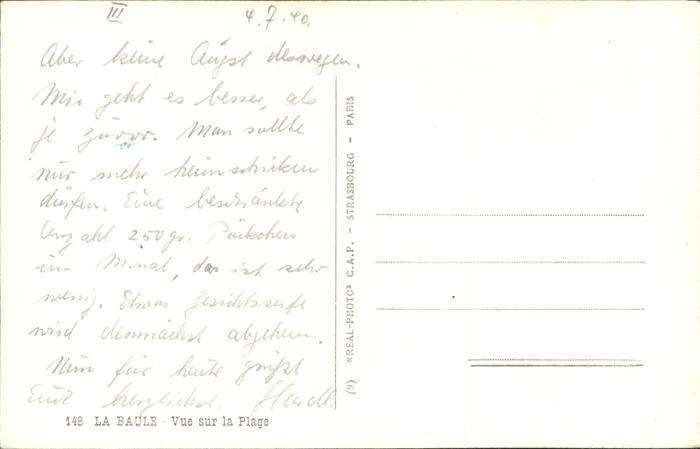 III 4.7.40.
Aber keine Angst deswegen.
Mir geht es besser, als
je zuvor. Man sollte
nur mehr heimschicken
dürfen. Eine beschränkte
Anzahl 250 gr. Päckchen
im Monat, das ist sehr
wenig. Etwas Gesichtsseife
wird demnächst abgehen.
Nun für heute grüßt
Euch herzlichst
148 LA BAULE - Vue sur la Plage
(9) «REAL-PHOTO» C.A.P. - STRASBOURG - PARIS